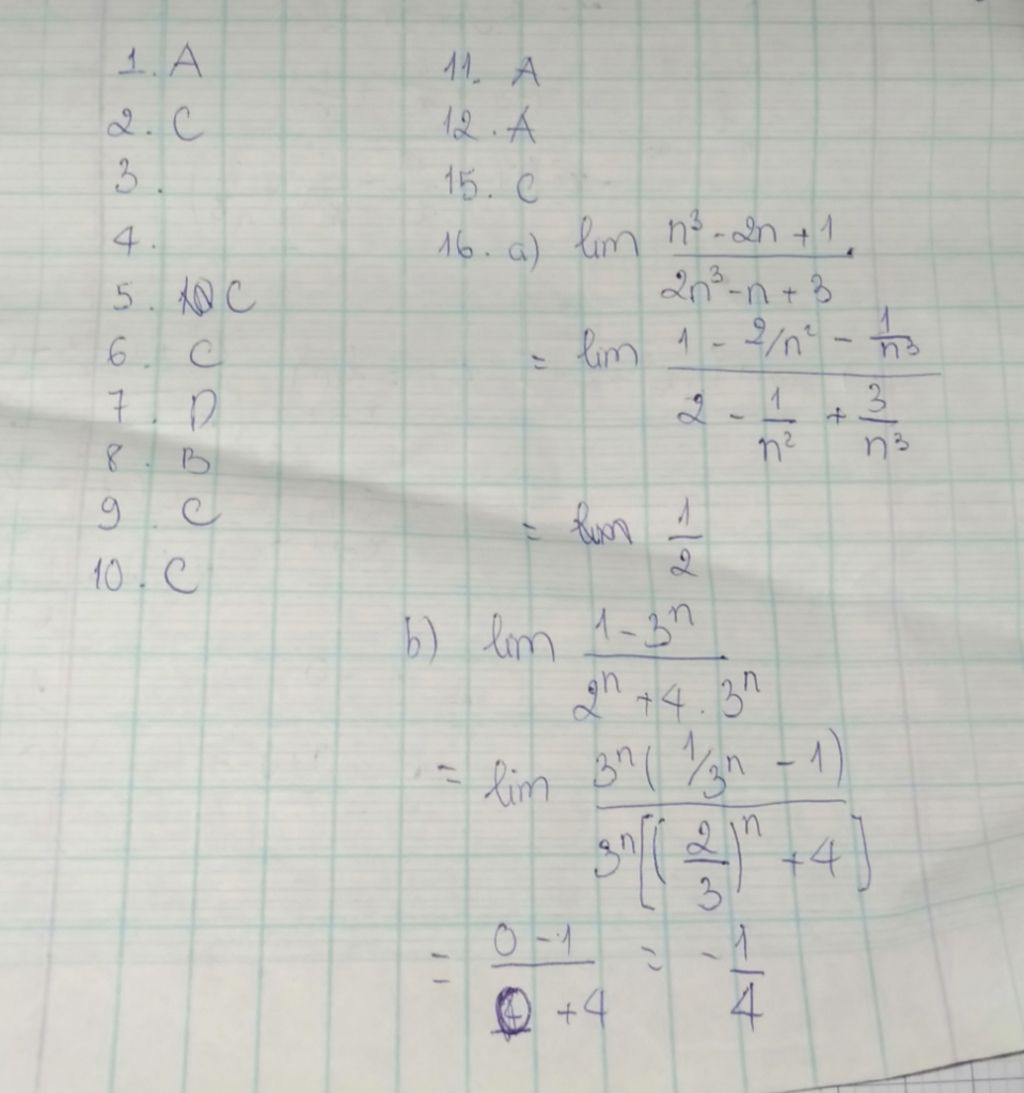 1. A
2. C
3.
4.
5. C
6. C
7. D
8. B
9. C
10. C
11. A
12. A
15. C
16. a) lim (n³ - 2n + 1)/(2n³ - n + 3)
= lim (1 - 2/n² - 1/n³)/(2 - 1/n² + 3/n³)
= lim 1/2
b) lim (1 - 3ⁿ)/(2ⁿ + 4 . 3ⁿ)
= lim 3ⁿ(1/3ⁿ - 1)/3ⁿ[(2/3)ⁿ + 4]
= (0 - 1)/(0 + 4) = - 1/4